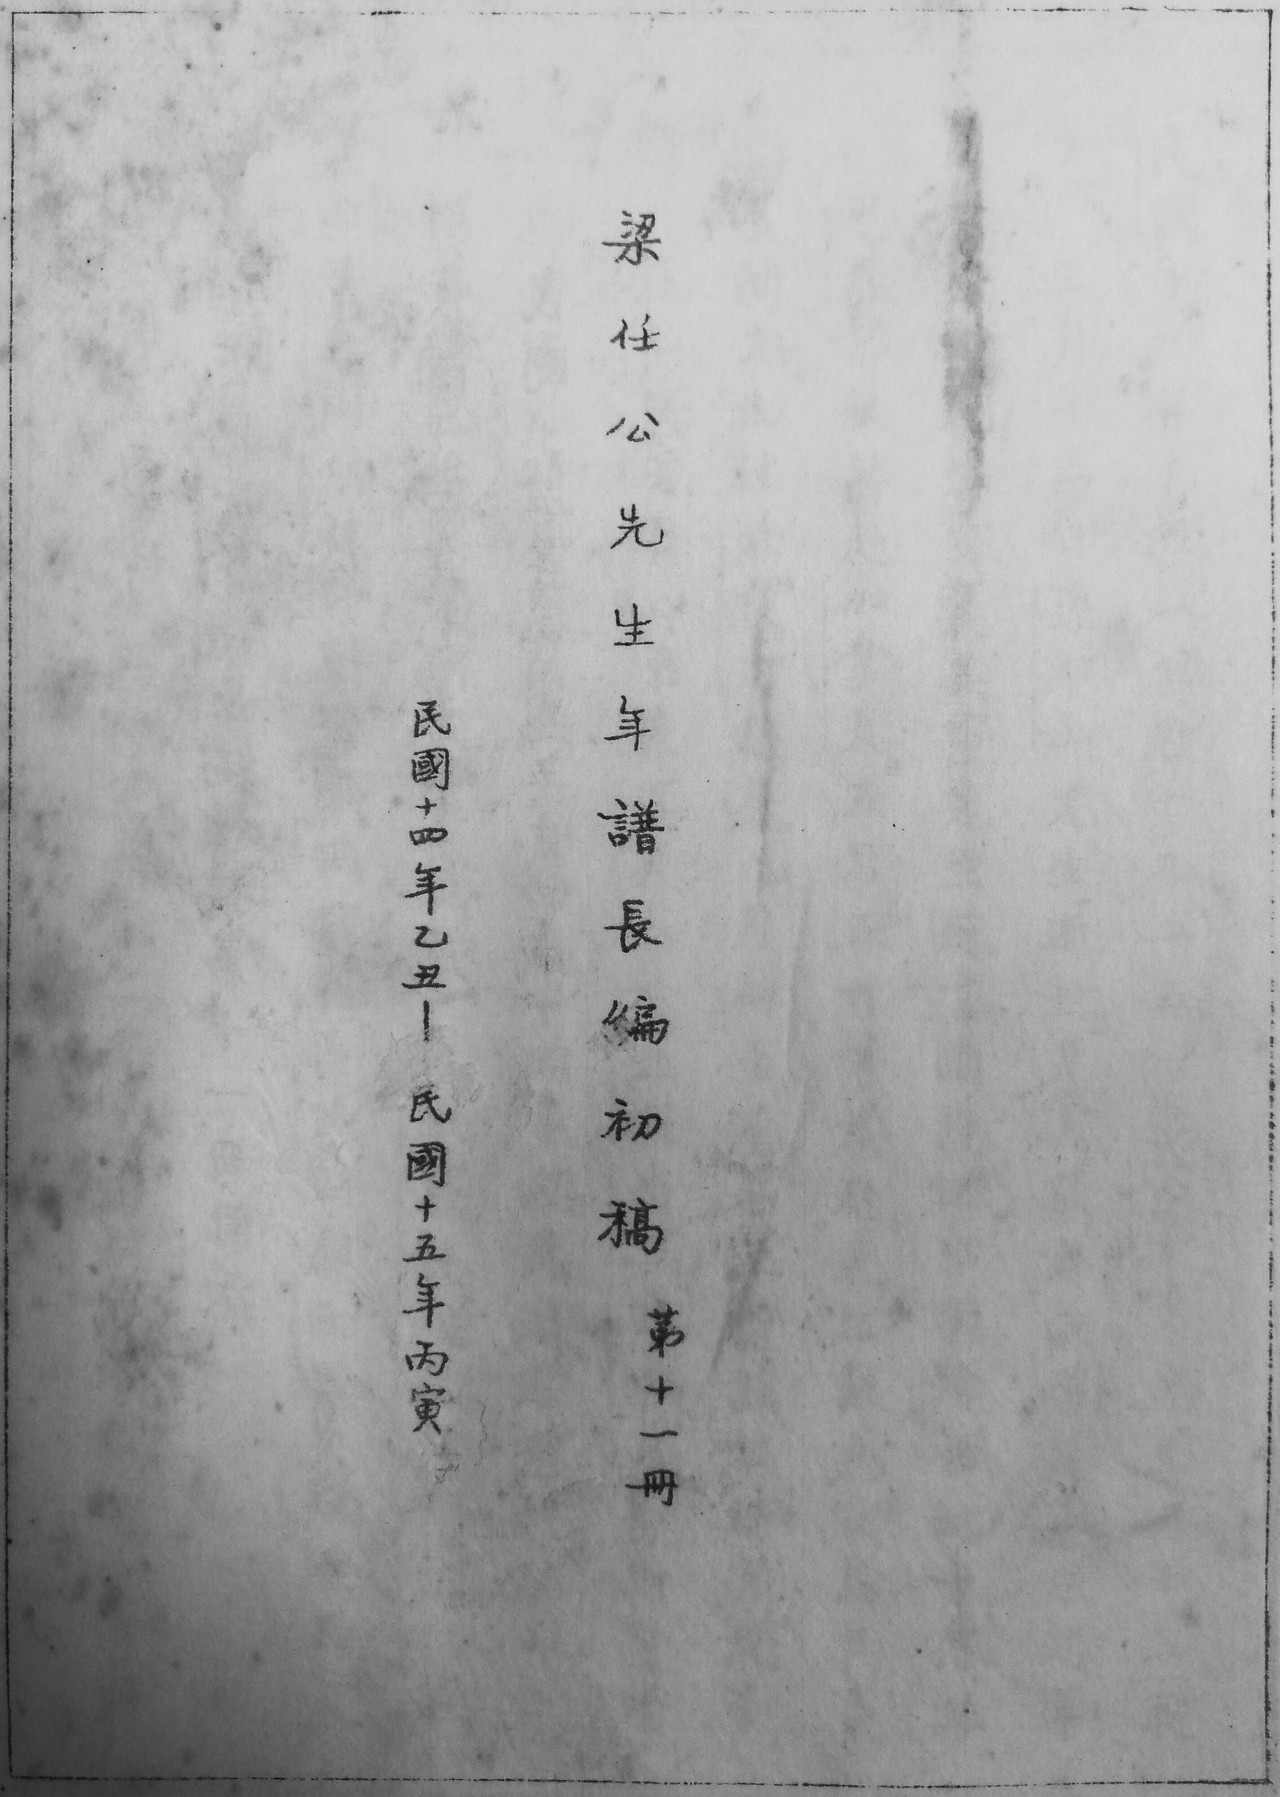 梁任公先生年譜長編初稿 第十一冊
民國十四年乙丑— 民國十五年丙寅